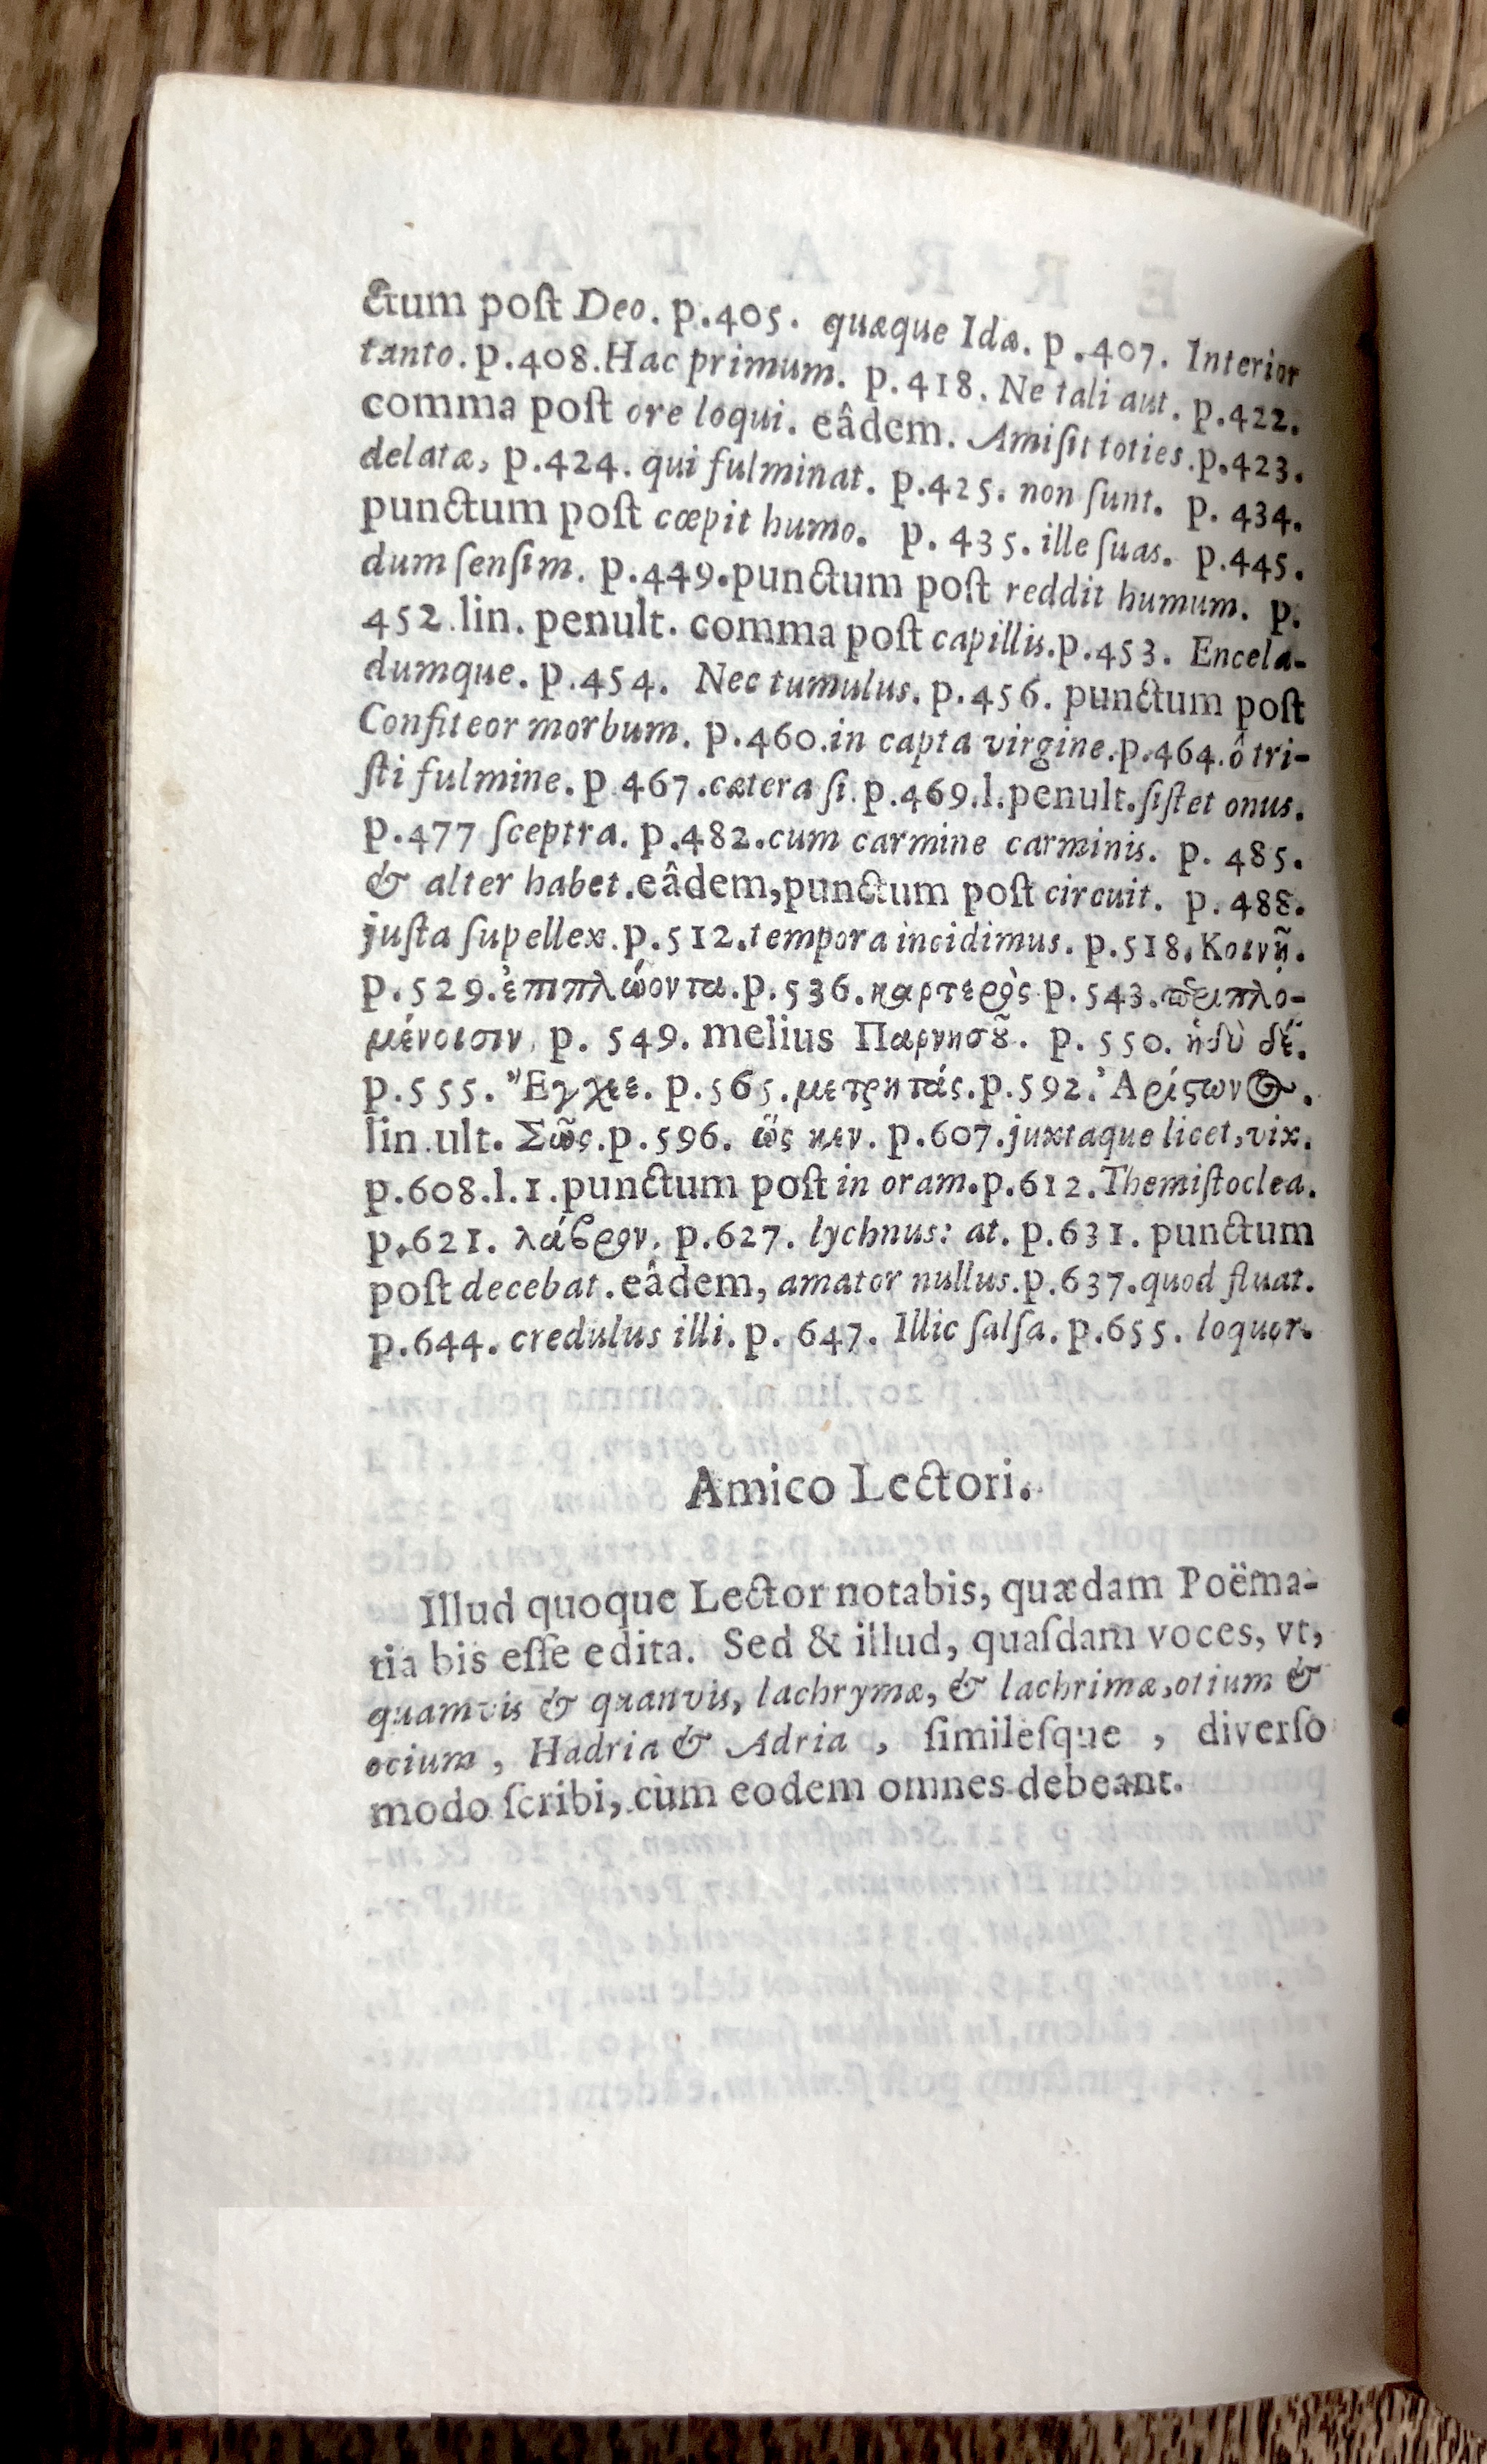 ctum poſt Deo. p.405. quæque Idæ. p.407. Interior
tanto. p.408. Hac primum. p.418. Ne tali aut. p.422.
comma poſt ore loqui. eâdem. Amiſit toties. p.423.
delatæ, p.424. qui fulminat. p.425. non ſunt. p. 434.
punctum poſt cœpit humo. p. 435. ille ſuas. p.445.
dum ſenſim. p.449. punctum poſt reddit humum. p.
452. lin. penult. comma poſt capillis. p.453. Encela-
dumque. p.454. Nec tumulus. p.456. punctum poſt
Confiteor morbum. p.460. in capta virgine. p.464. ô tri-
ſti fulmine. p 467. cætera ſi. p.469. l. penult. ſiſtet onus.
p.477 ſceptra. p.482. cum carmine carminis. p. 485.
& alter habet. eâdem, punctum poſt circuit. p. 488.
juſta ſupellex. p.512. tempora incidimus. p.518. Κοινῇ.
p.529. ἐπιπλώοντα. p.536. καρτερὸς p.543. περιπλο-
μένοισιν, p. 549. melius Παρνησοῦ. p. 550. ἡδὺ δέ.
p.555. Ἔγχεε. p.565. μετρητάς. p.592. Ἀρίϛωνος.
lin. ult. Σῶς. p.596. ὥς κεν. p.607. juxtaque licet, vix.
p.608. l.1. punctum poſt in oram. p.612. Themiſtoclea.
p.621. λάβρον. p.627. lychnus: at. p.631. punctum
poſt decebat. eâdem, amator nullus. p.637. quod fluat.
p.644. credulus illi. p. 647. Illic ſalſa. p.655. loquor.
Amico Lectori.
Illud quoque Lector notabis, quædam Poëma-
tia bis eſſe edita. Sed & illud, quaſdam voces, vt,
quamvis & quanvis, lachrymæ, & lachrimæ, otium &
ocium, Hadria & Adria, ſimileſque, diverſo
modo ſcribi, cùm eodem omnes debeant.